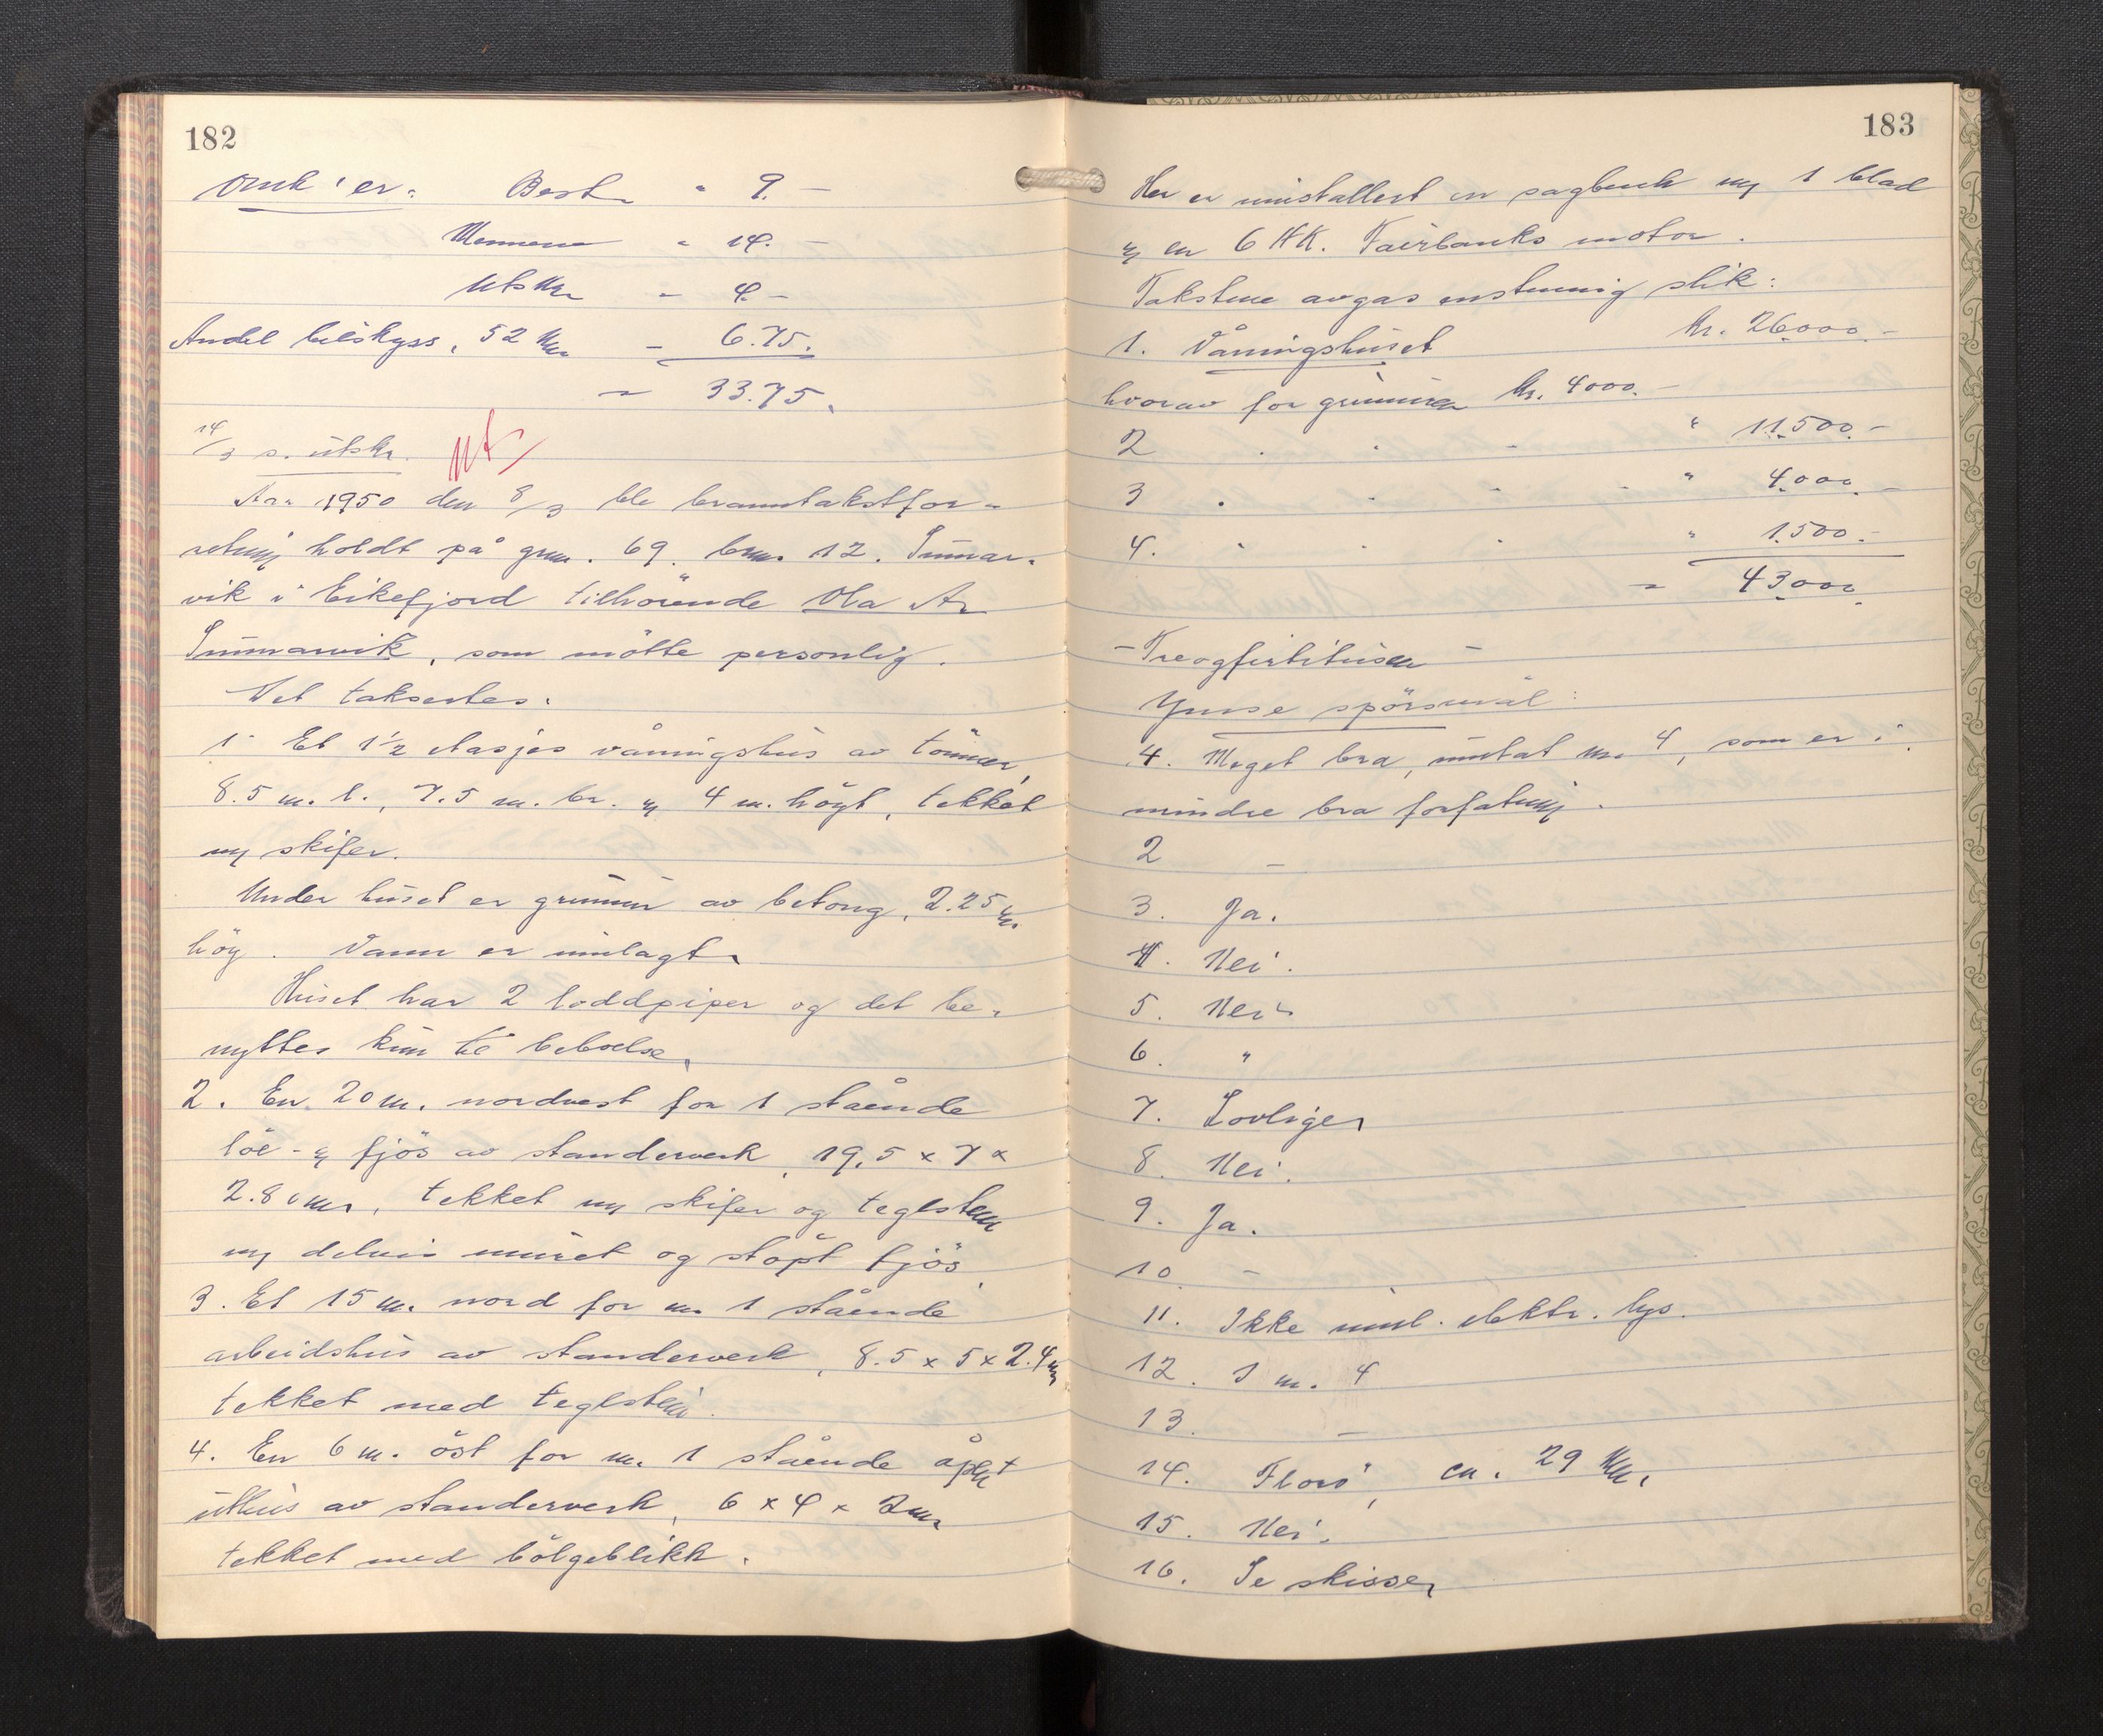 182
Omk'er: Best. " 9.–
Mennene " 14.–
Utskr. " 4.–
Andel bilskyss, 52 km. – 6.75.
= 33.75.
14/3 s. utskr.
Aar 1950 den 8/3 ble branntakstfor-
retning holdt på gnr. 69. bnr. 12. Innar-
vik i Eikefjord tilhörende Ola A.
Innarvik, som mötte personlig.
Det taksertes:
1. Et 1½ etasjes våningshus av tömmer,
8.5 m. l., 7.5 m. br. og 4 m. högt, tekket
m/ skifer.
Under huset er grunnmur av betong, 2.25 m.
hög. Vann er innlagt.
Huset har 2 loddpiper og det be-
nyttes kun til beboelse.
2. En 20 m. nordvest for 1 stående
löe- og fjös av standerverk, 19.5 x 7 x
2.80 m., tekket m/ skifer og teglsten
m/ delvis muret og stöpt fjös.
3. Et 15 m. nord for nr. 1 stående
arbeidshus av standerverk, 8.5 x 5 x 2.4 m
tekket med teglstein.
4. En 6 m. öst for nr. 1 stående åpent
uthus av standerverk, 6 x 4 x 2 m.
tekket med bölgeblikk.
183
Her er innstallert en sagbenk m/ 1 blad
og en 6 HK. Fairbanks motor.
Takstene avgas enstemmig slik:
1. Våningshuset kr. 26000.–
hvorav for grunnmuren kr. 4000.–
2 " " " " 11.500.–
3 " " " " " 4.000.–
4. " " " " 1.500.–
= 43.000.
– Treogfirtitusen –
Ymse spörsmål:
1. Meget bra, unntat nr. 4, som er i
mindre bra forfatning.
2 –
3. Ja.
4. Nei.
5. Nei.
6. "
7. Lovlige.
8. Nei.
9. Ja.
10. –
11. Ikke innl. elektr. lys.
12. I nr. 4
13. –
14. Florö, ca. 29 km.
15. Nei.
16. Se skisse.